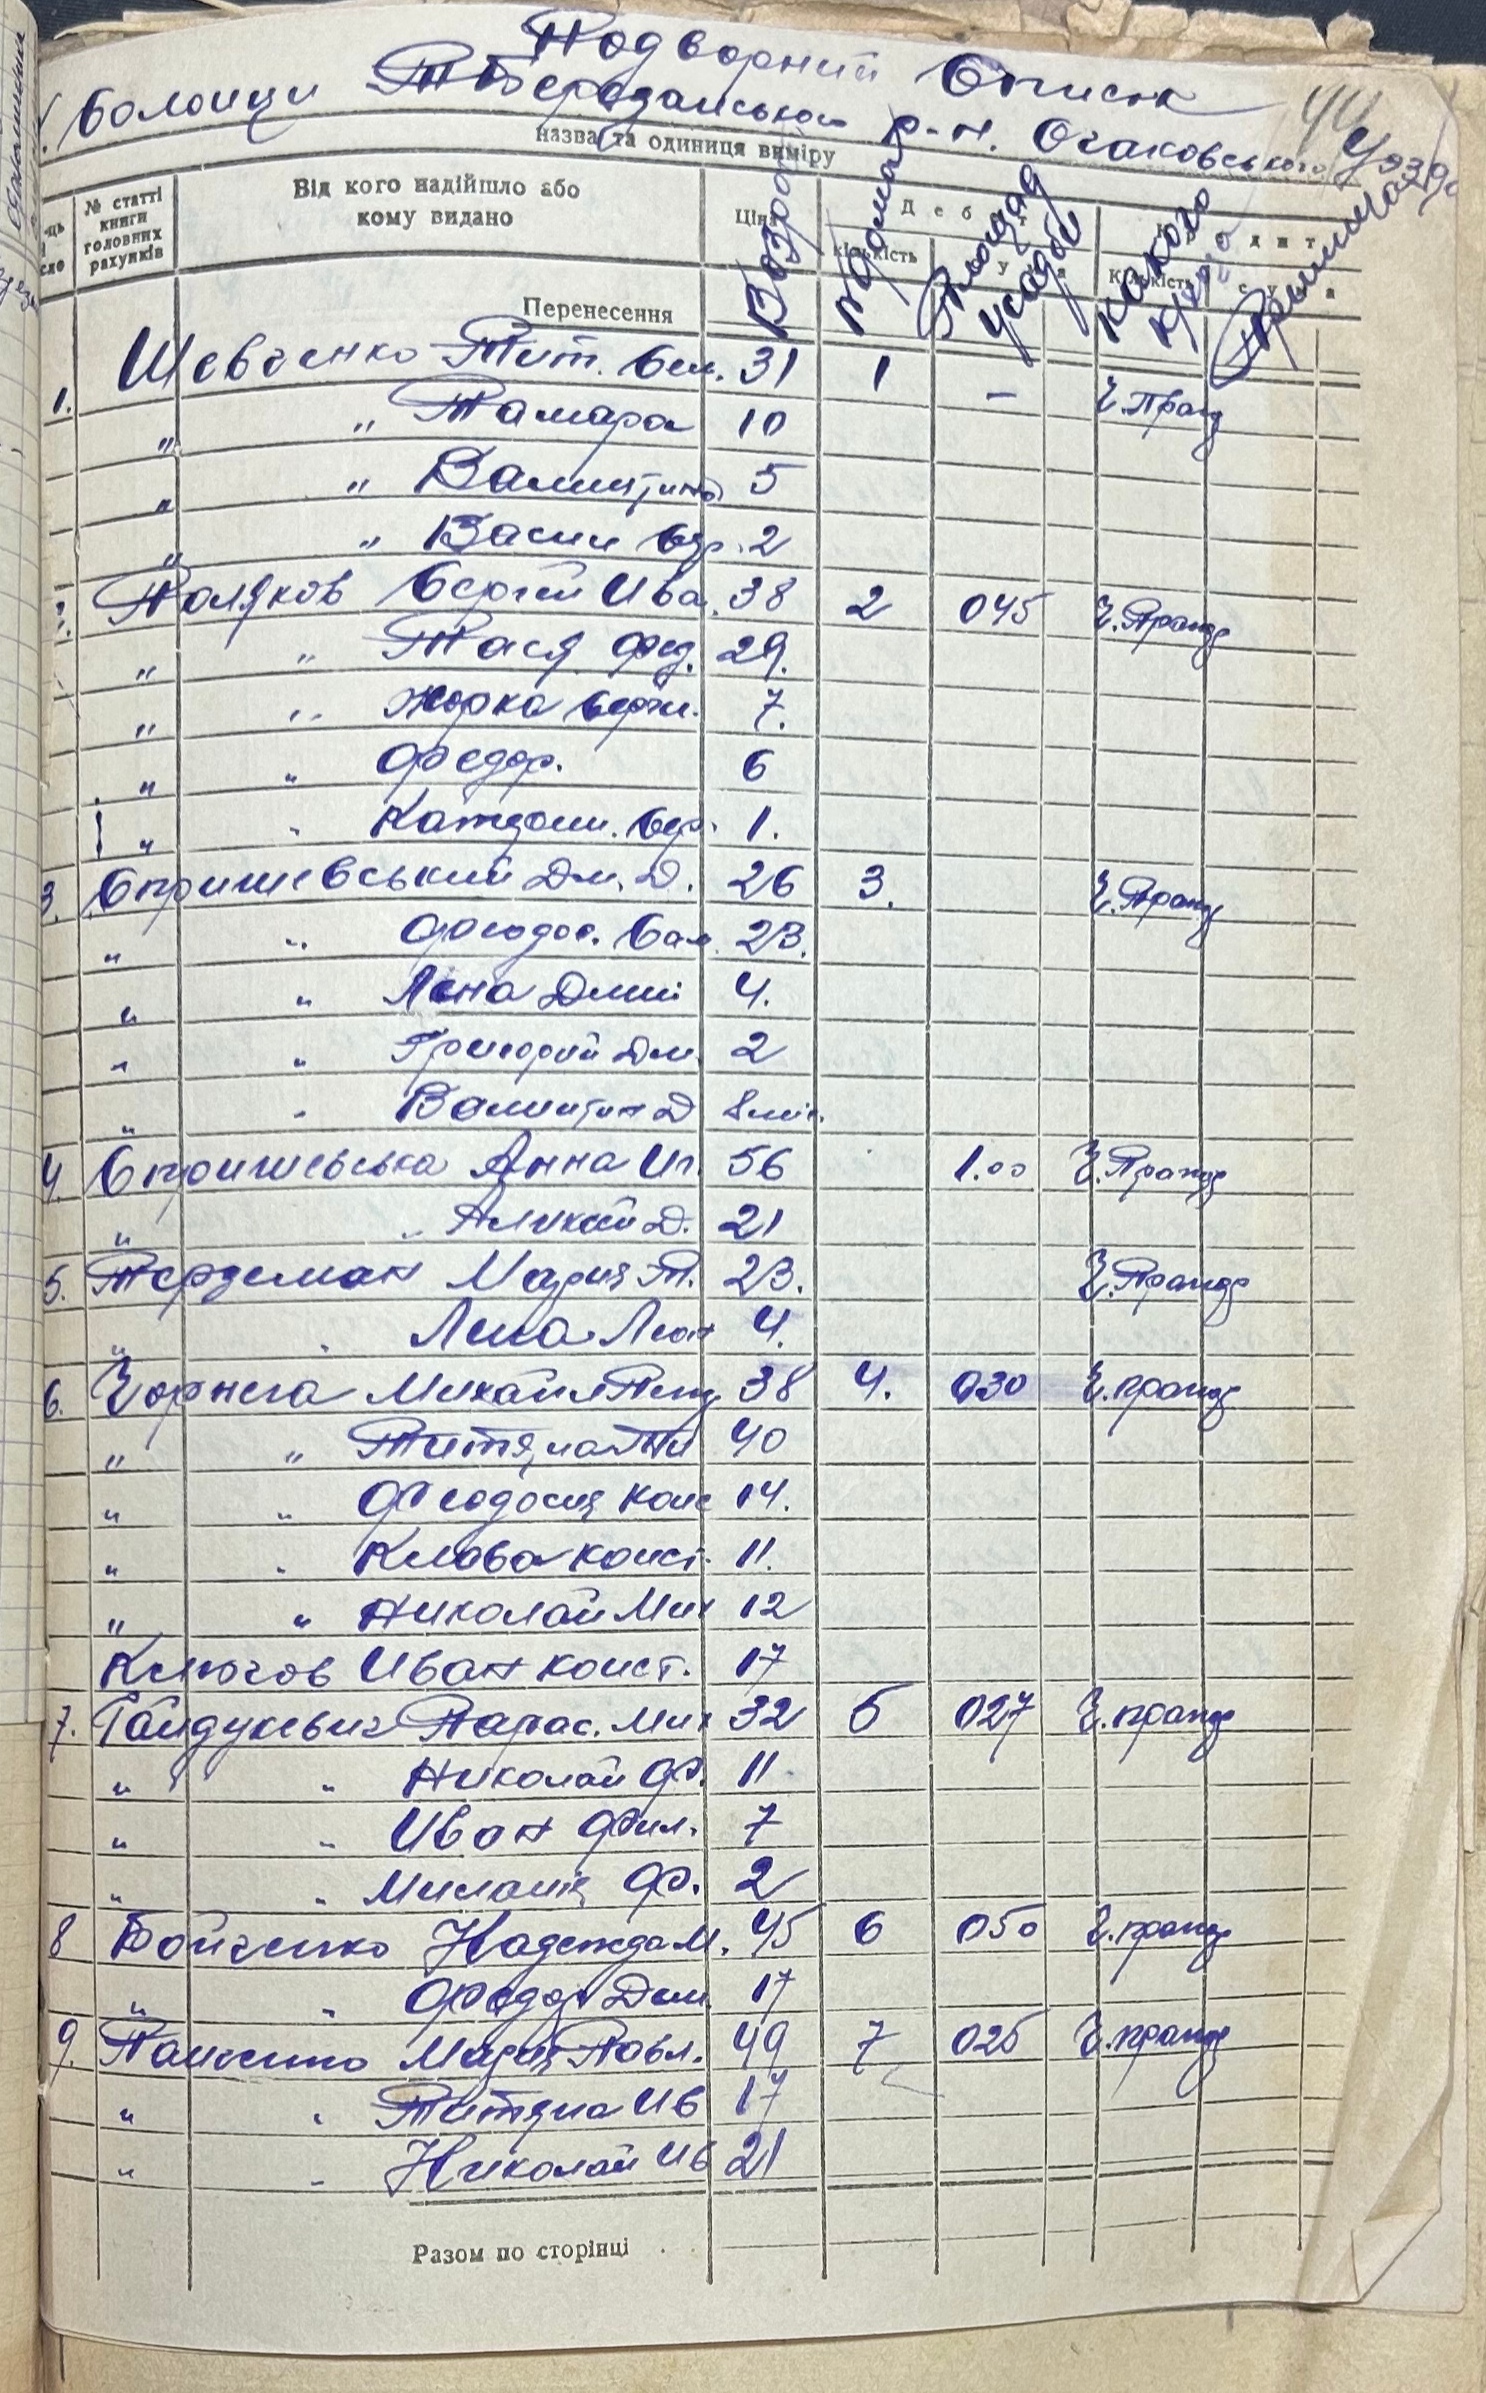 Подворний Список
44
Болоици Т Березанського р-н. Очаковського Уезда
назва та одиниця виміру
№ статті книги головних рахунків
Від кого надійшло або кому видано
Ціна
Возра
Дебет
кількість
№ дома
сума
Площад усадьб
Кредит
Кількість
какого
сума
Примічан
Перенесення
1. Шевченко Тит. Сем. 31 1 — Ч.Правд
„ „ Тамара 10
„ „ Валинтина 5
„ „ Васил 2
2. Поляков Сергей Ива. 38 2 045 Ч.Правд
„ „ Тася Фед. 29.
„ „ Жорка Серг. 7.
„ „ Федор. 6
„ „ Сер. 1.
3. Спришевський Дм. Д. 26 3. Ч.Правд
„ „ Феодос. Сам. 23.
„ „ Лена Дмит 4.
„ „ Григорий Дм. 2
„ „ Валинтин Д 8 міс.
4. Спришевська Анна Иг. 56 1.00 Ч.Правд
„ „ Д. 21
5. Терземан Мария Т. 23. Ч.Правд
„ „ Лина Леон 4.
6. Чорнега Михайил Пет 38 4. 030 Ч.правд
„ „ Титяна 40
„ „ Феодосия Конс 14.
„ „ Клава Конст. 11.
„ „ Николай Мих 12
Ключов Иван Конст. 17
7. Гайдукевич Парас. Мих 32 5 027 Ч.правд
„ „ Николай Ф. 11
„ „ Иван Фил. 7
„ „ Милания Ф. 2
8 Бойченко Надежда М. 45 6 050 Ч.правд
„ „ Федор Дем. 17
9. Панченко Мария Павл. 49 7 025 Ч.правд
„ „ Титяна Ив 17
„ „ Николай Ив 21
Разом по сторінці